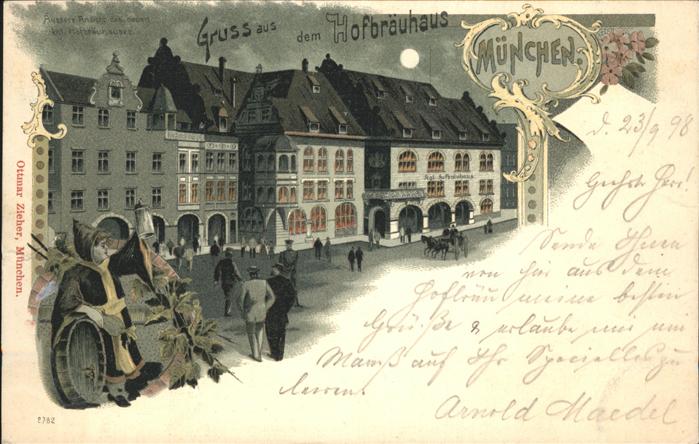 Äussere Ansicht des neuen
kgl. Hofbräuhauses.
Gruss aus dem Hofbräuhaus
MÜNCHEN.
Kgl. Hofbräuhaus
Ottmar Zieher, München.
2782
d. 23/9 98
Geehrter Herr!
Sende Ihnen
von hier aus dem
Hofbräu meine besten
Grüße & erlaube mir eine
Maaß auf Ihr Specielles zu
leeren.
Arnold Maedel